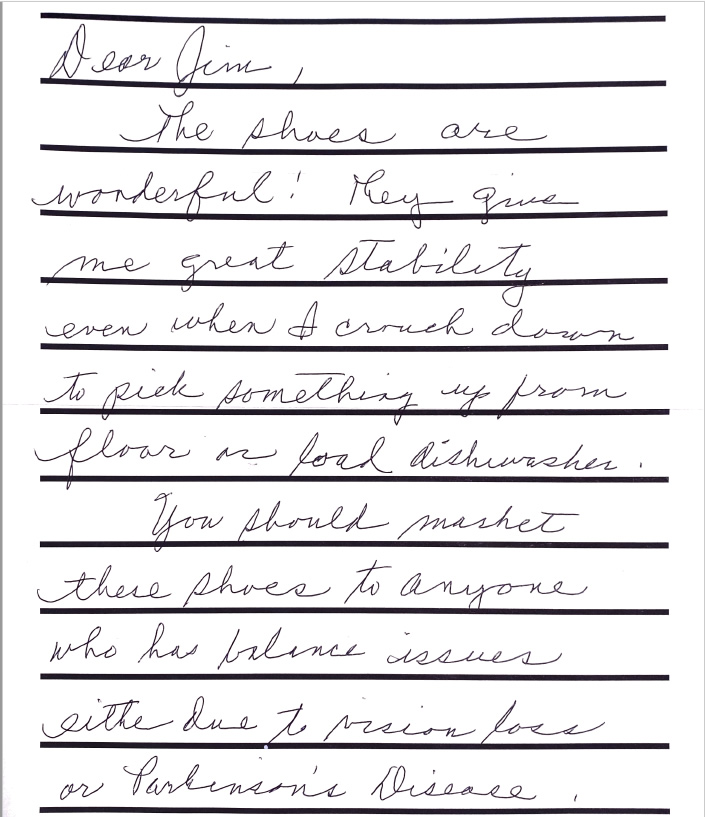 Dear Jim,
The shoes are
wonderful! They give
me great stability
even when I crouch down
to pick something up from
floor or load dishwasher.
You should market
these shoes to anyone
who has balance issues
eithe due to vision loss
or Parkinson's Disease.